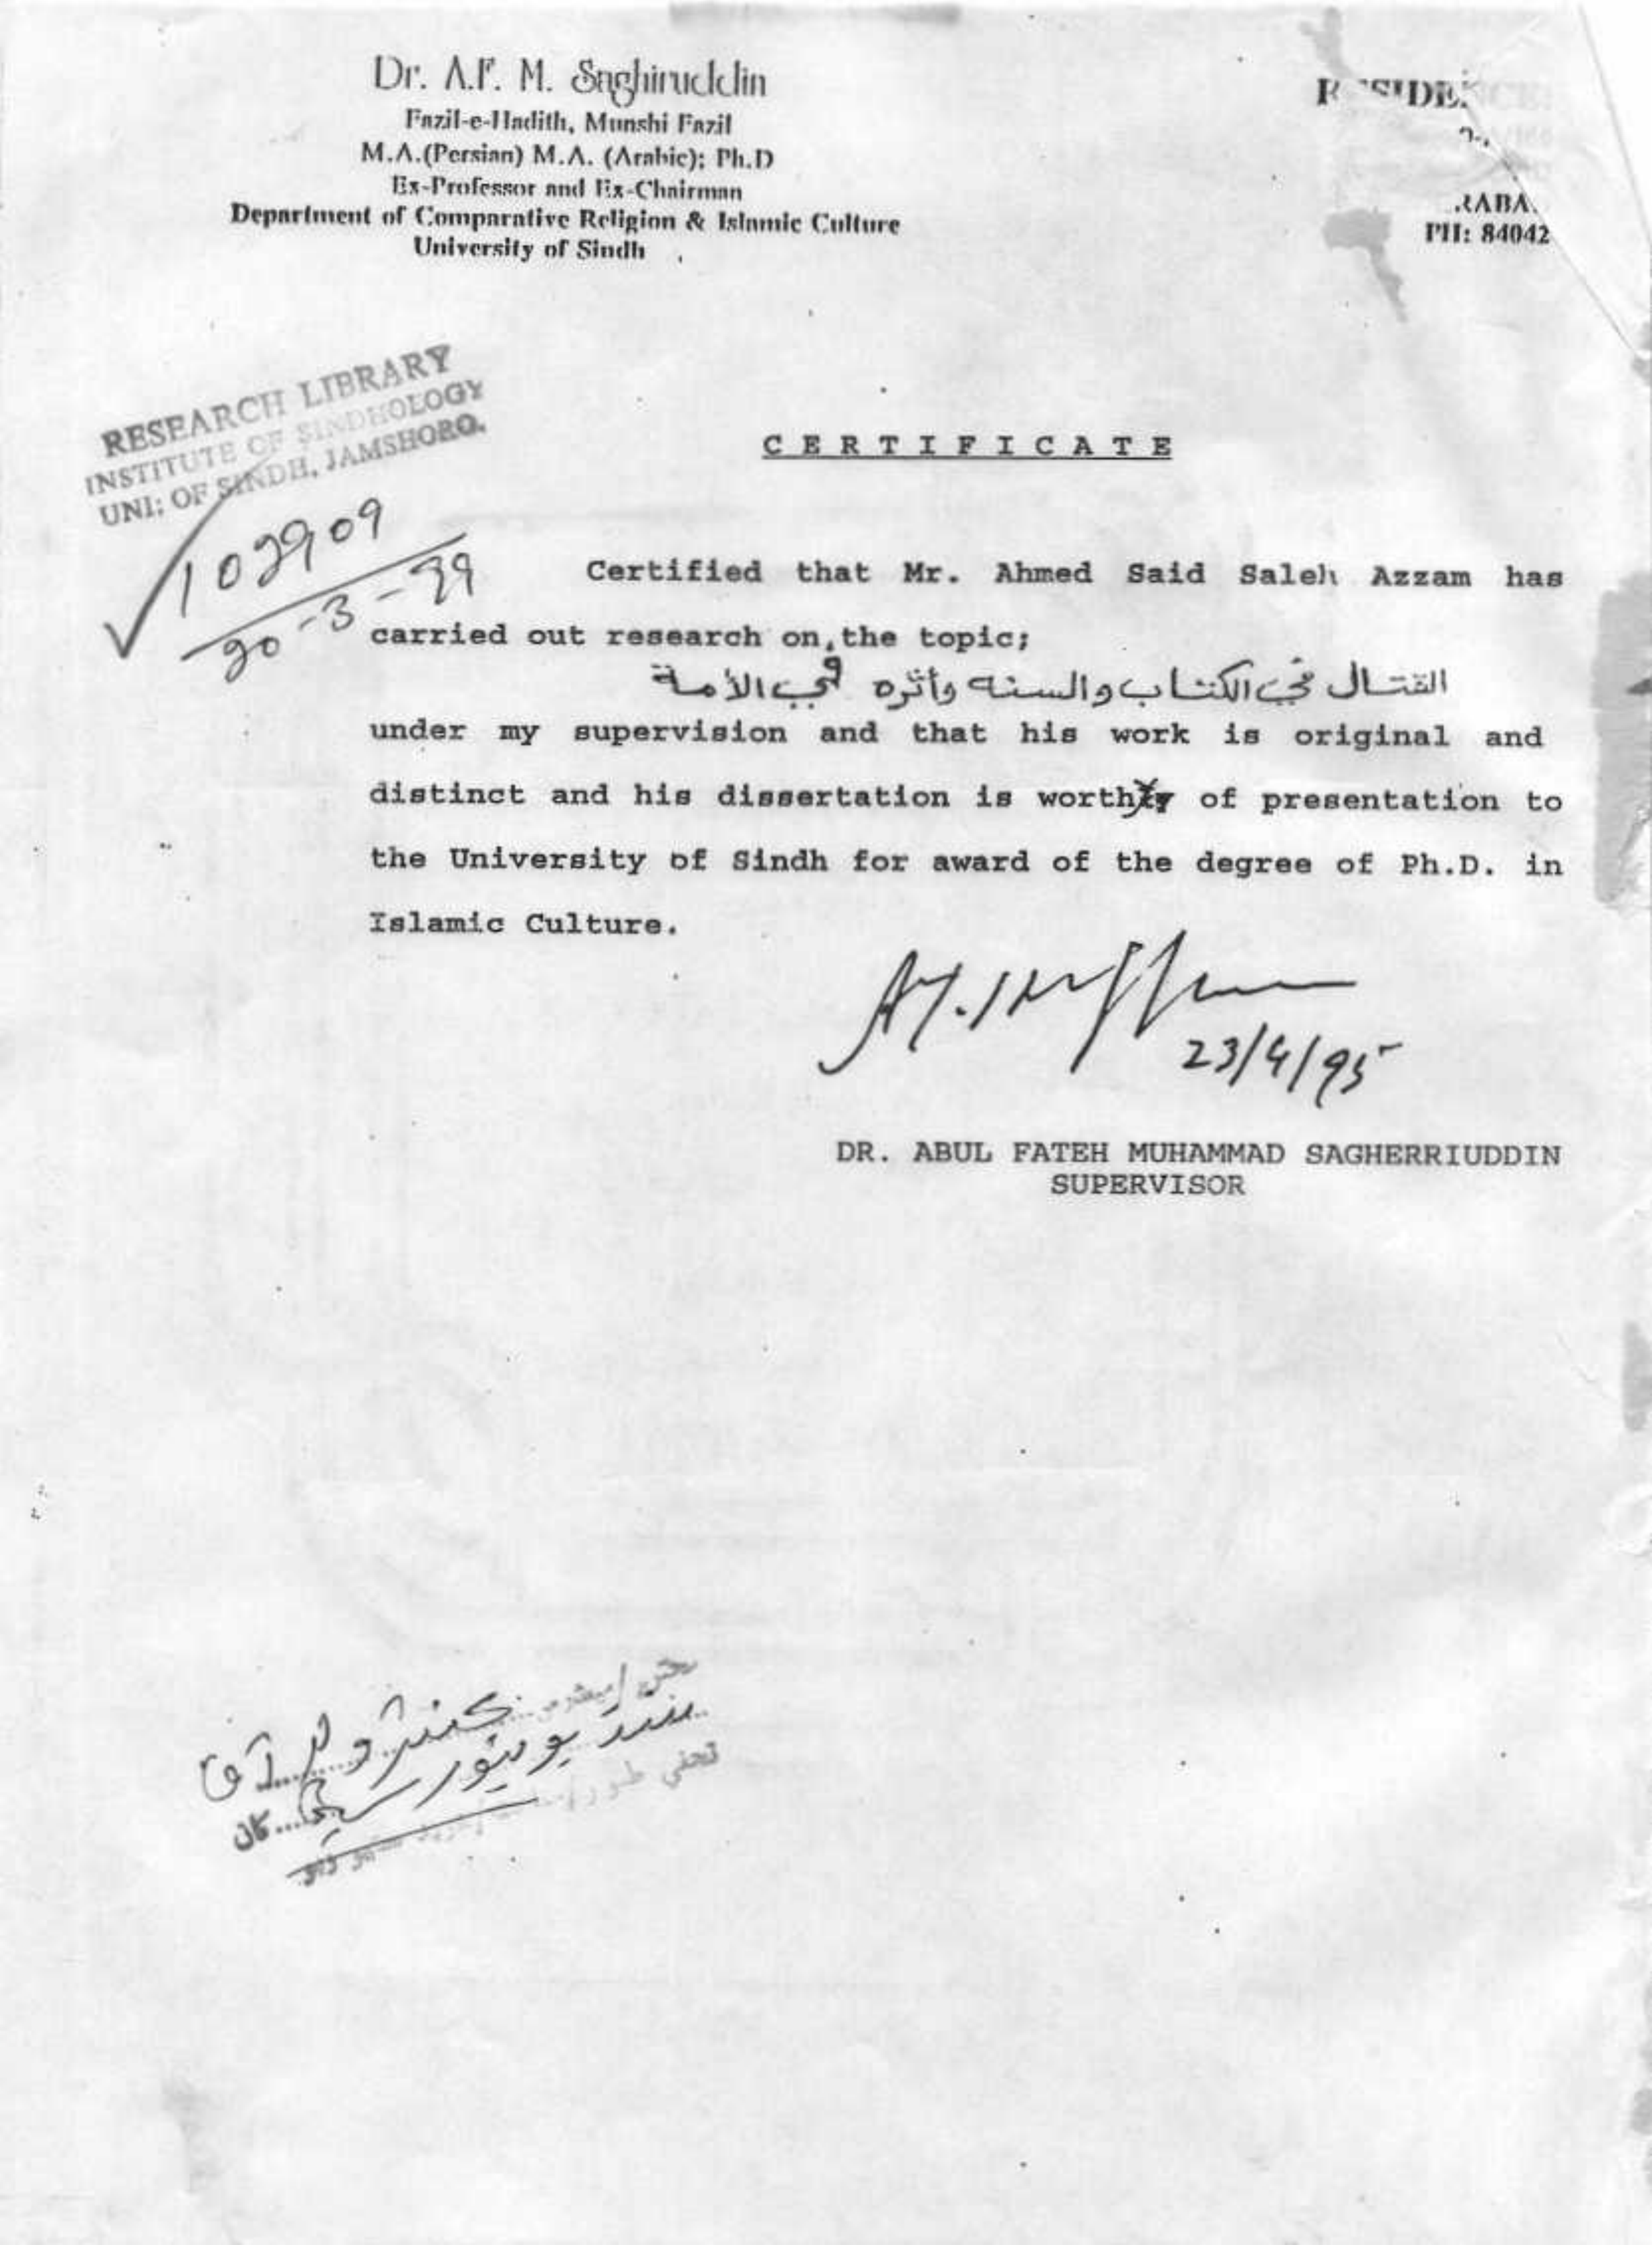 Dr. A.F. M. Saghiruddin
Fazil-e-Hadith, Munshi Fazil
M.A.(Persian) M.A. (Arabic); Ph.D
Ex-Professor and Ex-Chairman
Department of Comparative Religion & Islamic Culture
University of Sindh
PH: 84042
RESEARCH LIBRARY
INSTITUTE OF SINDHOLOGY
UNI: OF SINDH, JAMSHORO.
102909
20-3-99
CERTIFICATE
Certified that Mr. Ahmed Said Saleh Azzam has
carried out research on the topic;
القتال في الكتاب والسنه وأثره في الأمة
under my supervision and that his work is original and
distinct and his dissertation is worthy of presentation to
the University of Sindh for award of the degree of Ph.D. in
Islamic Culture.
23/4/95
DR. ABUL FATEH MUHAMMAD SAGHERRIUDDIN
SUPERVISOR
كنٽرولر آف
سنڌ يونيورسٽي کان
تحفي طور